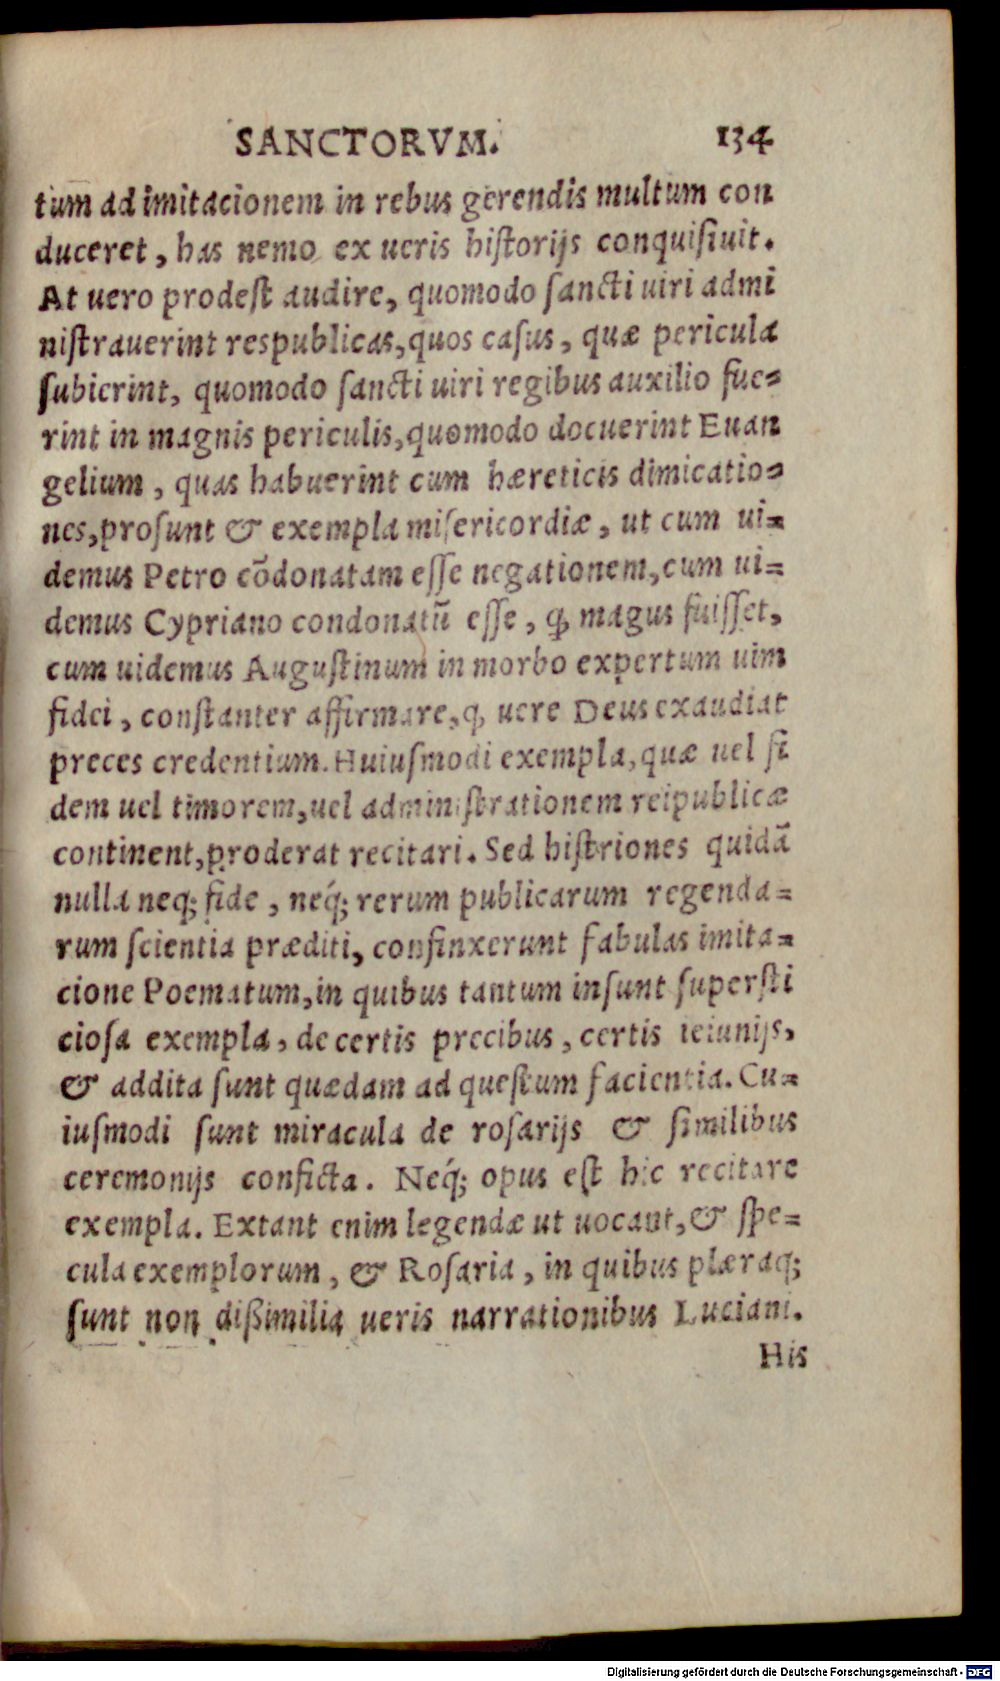 SANCTORVM. 134
tum ad imitacionem in rebus gerendis multum con
duceret, has nemo ex ueris historijs conquisiuit.
At uero prodest audire, quomodo sancti uiri admi
nistrauerint respublicas, quos casus, quæ pericula
subierint, quomodo sancti uiri regibus auxilio fue=
rint in magnis periculis, quomodo docuerint Euan
gelium, quas habuerint cum hæreticis dimicatio=
nes, prosunt & exempla misericordiæ, ut cum ui=
demus Petro cõdonatam esse negationem, cum ui=
demus Cypriano condonatũ esse, ꝙ magus fuisset,
cum uidemus Augustinum in morbo expertum uim
fidei, constanter affirmare, ꝙ uere Deus exaudiat
preces credentium. Huiusmodi exempla, quæ uel fi
dem uel timorem, uel administrationem reipublicæ
continent, proderat recitari. Sed histriones quidã
nulla neq; fide, néq; rerum publicarum regenda=
rum scientia præditi, confinxerunt fabulas imita=
cione Poematum, in quibus tantum insunt supersti
ciosa exempla, de certis precibus, certis ieiunijs,
& addita sunt quædam ad questum facientia. Cu=
iusmodi sunt miracula de rosarijs & similibus
ceremonijs conficta. Néq; opus est hic recitare
exempla. Extant enim legendæ ut uocant, & spe=
cula exemplorum, & Rosaria, in quibus plæraq;
sunt non dißimilia ueris narrationibus Luciani.
His
Digitalisierung gefördert durch die Deutsche Forschungsgemeinschaft - DFG